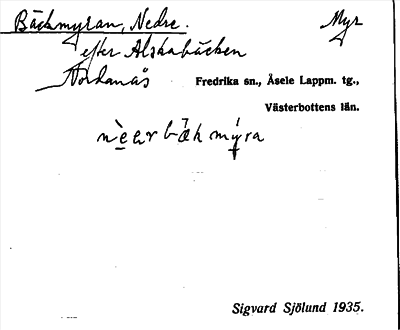 Bäckmyran, Nedre. Myr
efter Alskabäcken
Nordanås Fredrika sn., Åsele Lappm. tg.,
Västerbottens län.
Sigvard Sjölund 1935.